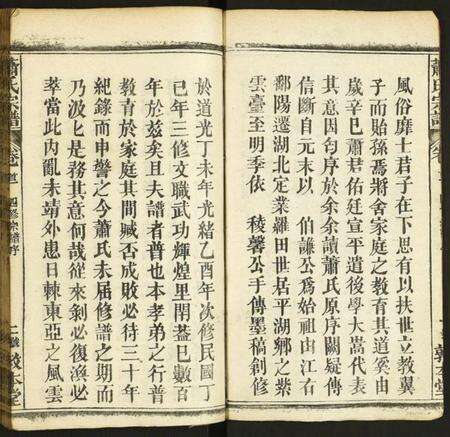 蕭氏宗譜
風俗靡士君子在下思有以扶世立教翼
子而貽孫焉將舍家庭之教育其道奚由
歲辛巳蕭君佑廷宣平遺後學大蒿代表
其意因匄序於余余讀蕭氏原序闕疑傳
信斷自元末以 伯謙公為始祖由江右
鄱陽遷湖北定業羅田世居平湖鄉之紫
雲臺至明季依 稜馨公手傳墨稿創修
敦本堂
於道光丁未年光緒乙酉年次修民國丁
巳年三修文職武功輝煌里閈蓋已數百
年於茲矣且夫譜者普也本孝弟之行普
教育於家庭其間臧否成敗必待三十年
紀錄而申警之今蕭氏未屆修譜之期而
乃汲匕是務其意何哉從來剝必復渙必
萃當此內亂未靖外患日棘東亞之風雲
蕭氏宗譜
卷首
四修宗譜序
敦本堂